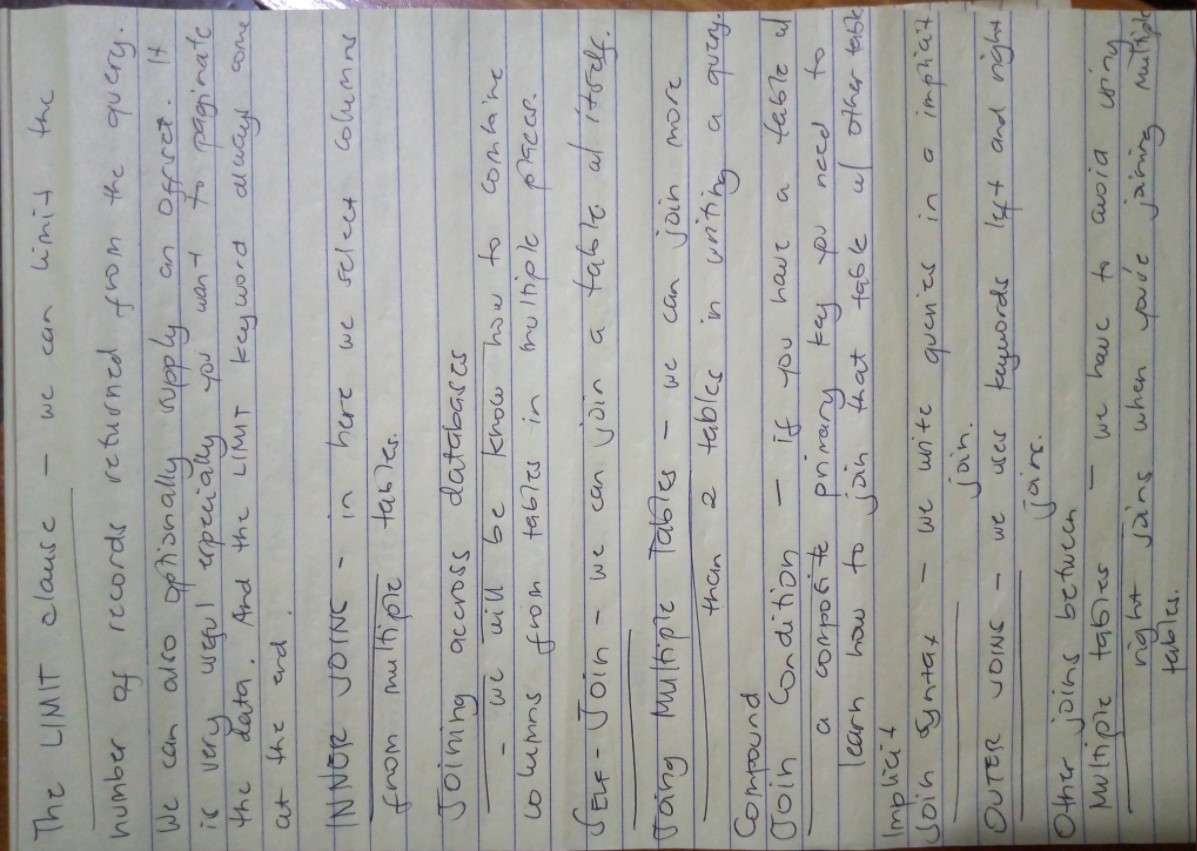 The LIMIT clause - we can limit the
number of records returned from the query.
We can also optionally supply an offset. It
is very useful especially you want to paginate
the data. And the LIMIT keyword always come
at the end.
INNER JOINS - in here we select columns
from multiple tables.
Joining accross databases
- we will be know how to combine
columns from tables in multiple places.
Self-Join - we can join a table w/ itself.
Joing Multiple Tables - we can join more
than 2 tables in writing a query.
Compound
Join Condition - if you have a table w/
a composite primary key you need to
learn how to join that table w/ other table
Implicit
Join Syntax - we write queries in a implicit
join.
OUTER JOINS - we uses keywords left and right
joins.
Other joins between
Multiple tables - we have to avoid using
right joins when you're joining multiple
tables.